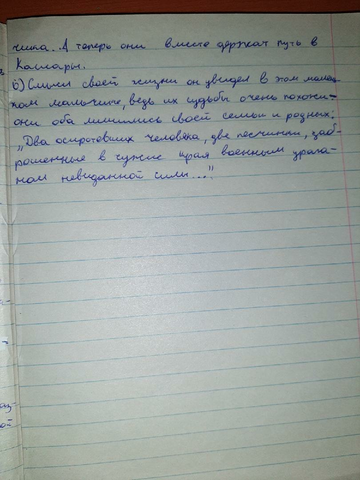 чика. А теперь они вместе держат путь в
Кашары.
б) Смысл своей жизни он увидел в этом малень-
ком мальчике, ведь их судьбы очень похожи –
они оба лишились своей семьи и родных:
„Два осиротевших человека, две песчинки, заб-
рошенные в чужие края военным урага-
ном невиданной силы..."